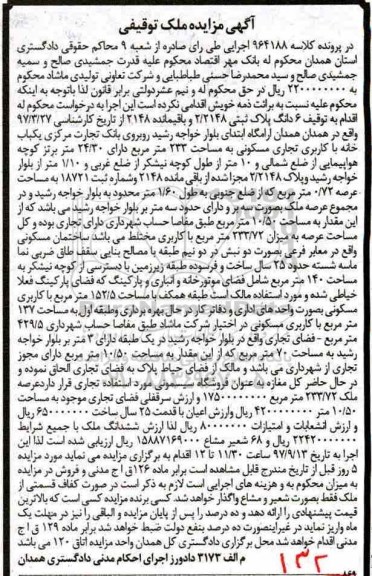 آگهی مزایده ملک توقیفی
در پرونده کلاسه ۹۶۴۱۸۸ اجرایی طی رای صادره از شعبه ۹ محاکم حقوقی دادگستری
استان همدان محکوم له بانک مهر اقتصاد محکوم علیه قدرت جمشیدی صالح و سمیه
جمشیدی صالح و سید محمدرضا حسنی طباطبایی و شرکت تعاونی تولیدی ماشاد محکوم
به ۲۲۰۰۰۰۰۰۰۰ ریال در حق محکوم له و نیم عشر دولتی برابر قانون لذا باتوجه به اینکه
محکوم علیه نسبت به برائت ذمه خویش اقدامی نکرده است این اجرا به درخواست محکوم له
اقدام به توقیف ۶ دانگ پلاک ثبتی ۲/۲۱۴۸ و باقیمانده ۲۱۴۸ از تاریخ کارشناسی ۹۷/۳/۲۷
واقع در همدان همدان آرامگاه ابتدای بلوار خواجه رشید روبروی بانک تجارت مرکزی یکباب
خانه با کاربری تجاری مسکونی به مساحت ۲۳۳ متر مربع دارای ۲۴/۳۰ متر برتز کوچه
هواپیمایی از ضلع شمالی و ۱۰ متر از طول کوچه نیشکر از ضلع غربی و ۱/۱۰ متر از بلوار
خواجه رشید وپلاک ۲/۲۱۴۸ مجزا شده از باقی مانده ۲۱۴۸ وشماره ثبت ۱۸۷۲۱ به مساحت
عرصه ۰/۷۲ متر مربع که از ضلع جنوبی به طول ۱/۶۰ متر محدود به بلوار خواجه رشید و در
مجموع عرصه ملک بصورت سه بر و دارای حدود سه متر بر بلوار خواجه رشید می باشد که از
این مقدار به مساحت ۱۰/۵۰ متر مربع طبق مفاصا حساب شهرداری دارای تجاری بوده و کل
مساحت عرصه به میزان ۲۳۳/۷۲ متر مربع با کاربری مختلط می باشد ساختمان مسکونی
واقع در معابر فرعی بصورت دو نبش در دو نیم طبقه با مصالح بنایی سقف طاق ضربی نما
ماسه شسته حدود ۲۵ سال ساخت و فرسوده طبقه زیرزمین با دسترسی از کوچه نیشکر به
مساحت ۱۴۰ متر مربع شامل فضای موتورخانه و انباری و پارکینگ که فضای پارکینگ فعلا
خیاطی شده و مورد استفاده مالک است طبقه همکف با مساحت ۱۵۲/۵ متر مربع با کاربری
مسکونی بصورت واحدهای اداری و دفاتر کار در حال بهره برداری وطبقه اول به مساحت ۱۳۷
متر مربع با کاربری مسکونی در اختیار شرکت ماشاد طبق مفاصا حساب شهرداری ۴۲۹/۵
متر مربع - فضای تجاری واقع در بلوار خواجه رشید در یک طبقه دارای ۳ متر بر بلوار خواجه
رشید به مساحت ۷۰ متر مربع که از این مقدار به مساحت ۱۰/۵۰ متر مربع دارای مجوز
تجاری از شهرداری می باشد و مالک از فضای حیاط پلاک به فضای تجاری الحاق نموده و
در حال حاضر کل مغازه با عنوان فروشگاه مورد استفاده تجاری قرار دارد عرصه
ملک ۲۳۳/۷۲ متر مربع ۱۷۵۰۰۰۰۰۰۰۰ و ارزش سرقفلی فضای تجاری موجود به مساحت
۱۰/۵۰ متر ۴۲۰۰۰۰۰۰۰۰ ریال وارزش اعیان با قدمت ۲۵ سال ساخت ۶۵۰۰۰۰۰۰۰ ریال
و ارزش انشعابات و امتیازات ۸۰۰۰۰۰۰۰ ریال لذا ارزش ششدانگ ملک با جمیع شرایط
۲۲۴۲۰۰۰۰۰۰۰ ریال و ۶۸ شعیر مشاع ۱۵۸۸۷۱۶۹۰۰۰ ریال ارزیابی شده است لذا این
اجرا به تاریخ ۹۷/۹/۱۳ ساعت ۱۱/۳۰ تا ۱۲ اقدام به برگزاری مزایده می نماید مورد مزایده
۵ روز قبل از تاریخ مندرج قابل مشاهده است برابر ماده ۱۲۶ ق ا ج مدنی و فروش در مزایده
به میزان محکوم به و هزینه های اجرایی است لازم به ذکر است در صورت کفاف قسمتی از
ملک فقط بصورت شعیر و مشاع واگذار خواهد شد. کسی برنده مزایده کسی است که بالاترین
قیمت پیشنهادی را ارائه دهد و ده درصد را پس از پایان مزایده و الباقی را نیز در مهلت یک
ماه واریز نماید در غیراینصورت ده درصد بنفع دولت ضبط خواهد شد برابر ماده ۱۲۹ ق ا ج
مدنی اقدام خواهد شد محل برگزاری دادگستری کل همدان واحد مزایده اتاق ۱۲۰ می باشد
م الف ۳۱۷۳ دادورز اجرای احکام مدنی دادگستری همدان
۱۳۲